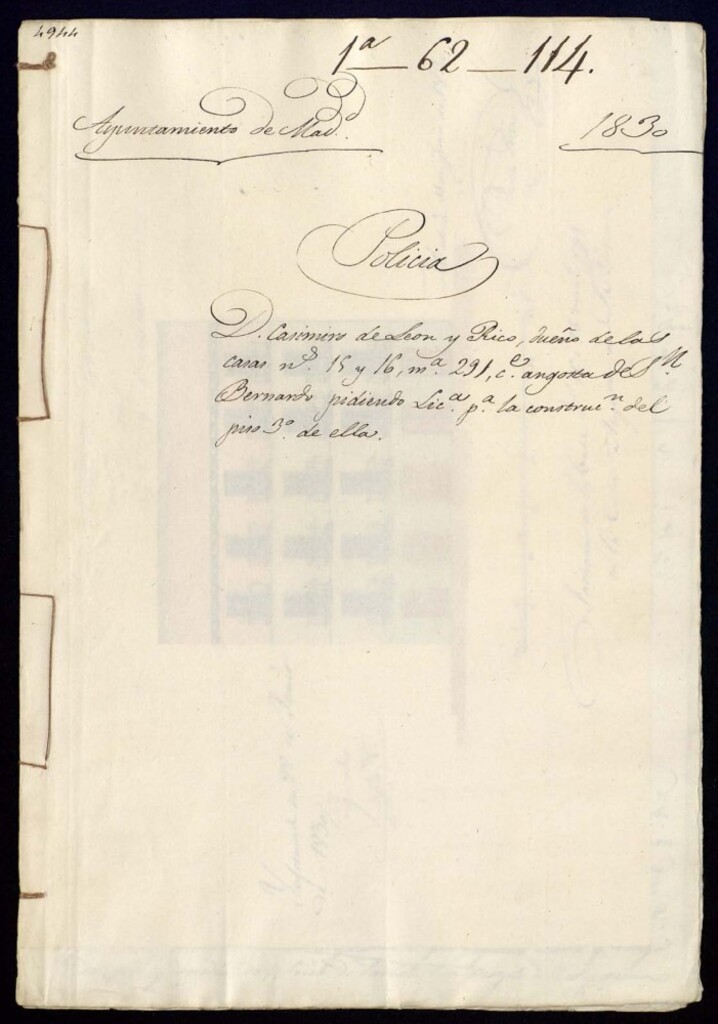 4944
1ª — 62 — 114.
Ayuntamiento de Mad.d
1830
Policia
D. Casimiro de Leon y Rico, dueño de las
casas n.s 15 y 16, m.ª 291, c.e angosta de S.n
Bernardo pidiendo Lic.ª p.ª la construc.n del
piso 3.º de ella.